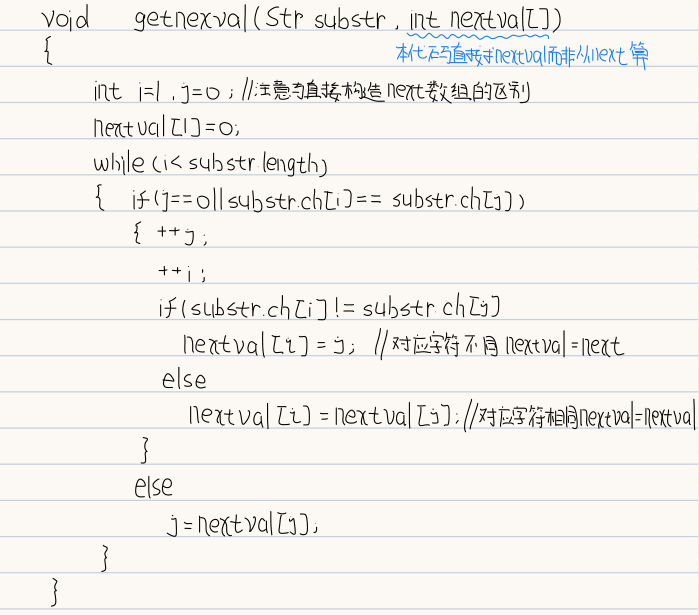 void getnexval(Str substr, int nextval[])
{
本代码直接求nextval而非从next算
int i=1, j=0; //注意与直接构造next数组的区别
nextval[1]=0;
while(i<substr.length)
{ if(j==0||substr.ch[i]==substr.ch[j])
{ ++j;
++i;
if(substr.ch[i]!=substr.ch[j]
nextval[i]=j; //对应字符不同nextval=next
else
nextval[i]=nextval[j]; //对应字符相同nextval=nextval
}
else
j=nextval[j];
}
}